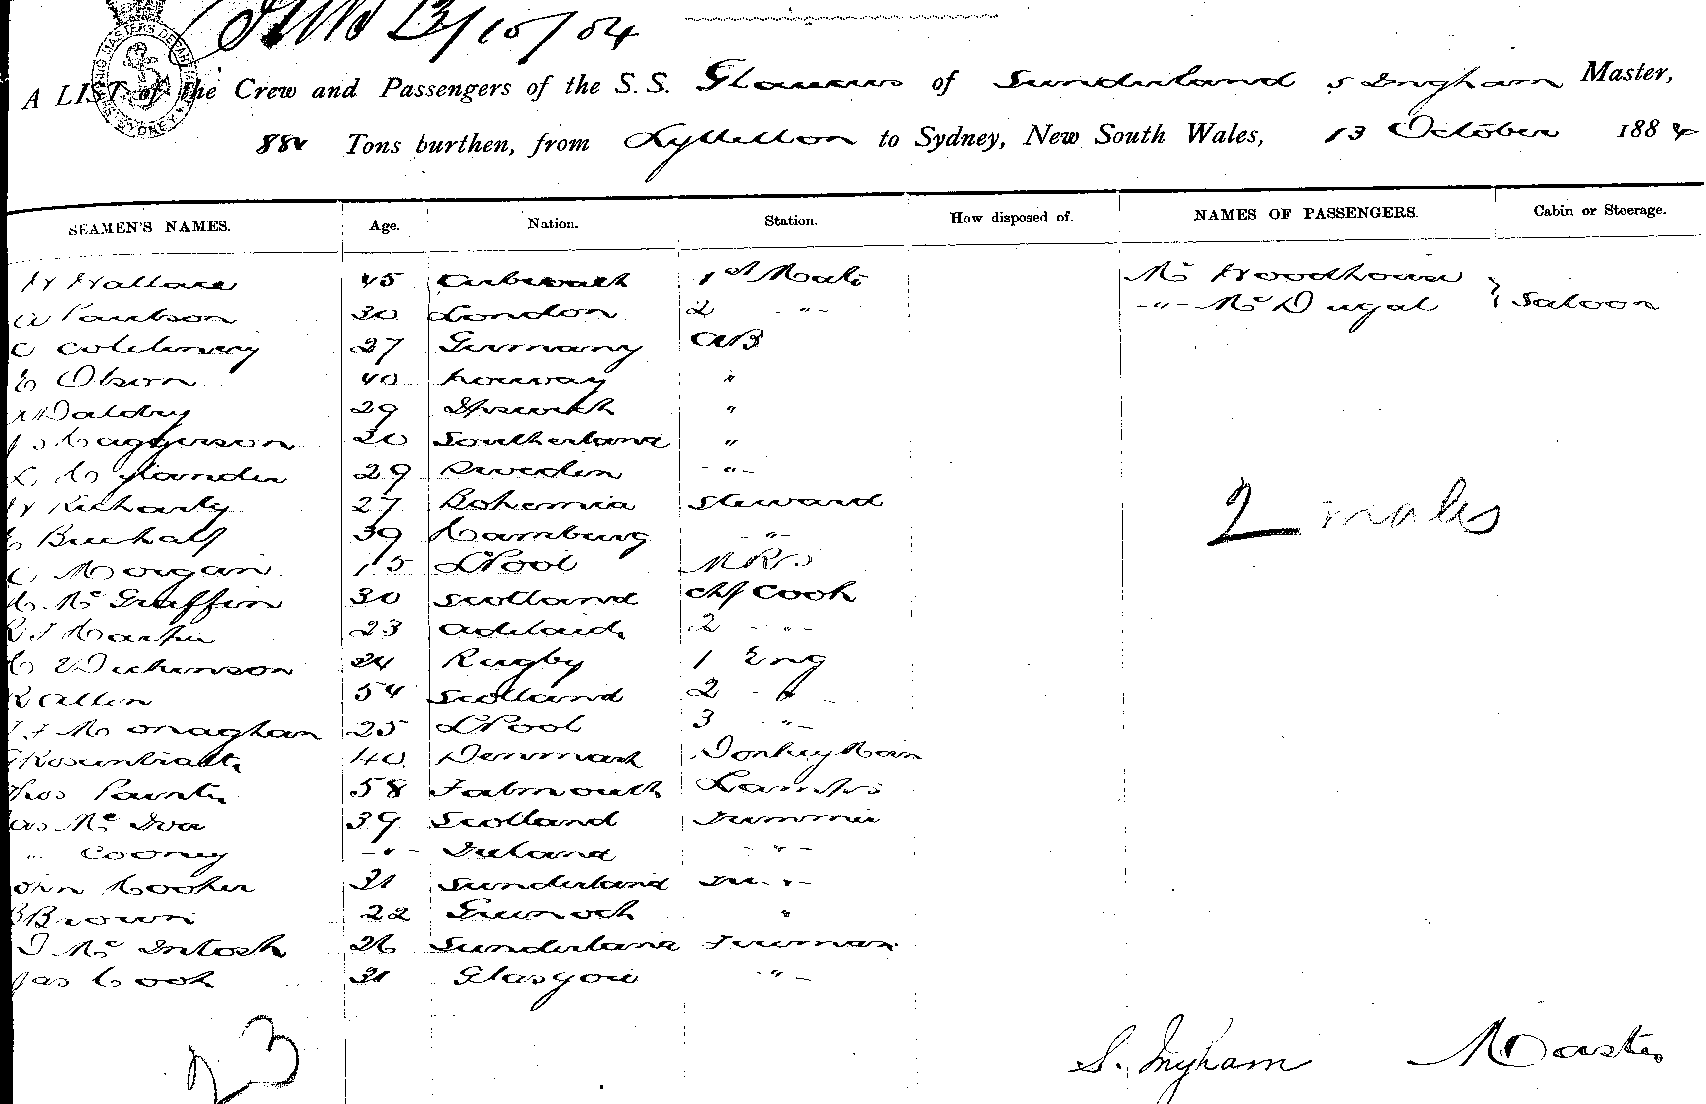 13/10/84
A LIST of the Crew and Passengers of the S.S. Glaucus of Sunderland S Ingham Master,
884 Tons burthen, from Lyttelton to Sydney, New South Wales, 13 October 1884
SEAMEN'S NAMES. Age. Nation. Station. How disposed of. NAMES OF PASSENGERS. Cabin or Steerage.
W Wallace 45 1st Mate Mr Woodhouse
30 London 2 " " Mc Dugal } Saloon
C 27 Germany AB
Olson 40 Norway "
Waldry 29 Ipswich "
Haggerson 20 Southerland "
29 Sweden "
27 Bohemia Steward
39 Hamburg "
C Morgan 15 LPool MRS
Mc Griffin 30 Scotland Chf Cook
23 Adelaide 2 "
Dickinson 24 Rugby 1 Eng
R Allen 54 Scotland 2 "
Monaghan 25 LPool 3 "
40 Denmark Donkey Man
58 Falmouth Lamps
Jas Mc 39 Scotland Trimmer
" Cooney " Ireland "
John Hooker 31 Sunderland "
Brown 22 Greenock "
Mc Intosh 26 Sunderland Fireman
Jas Cook 31 Glasgow "
2 males
23
S. Ingham Master